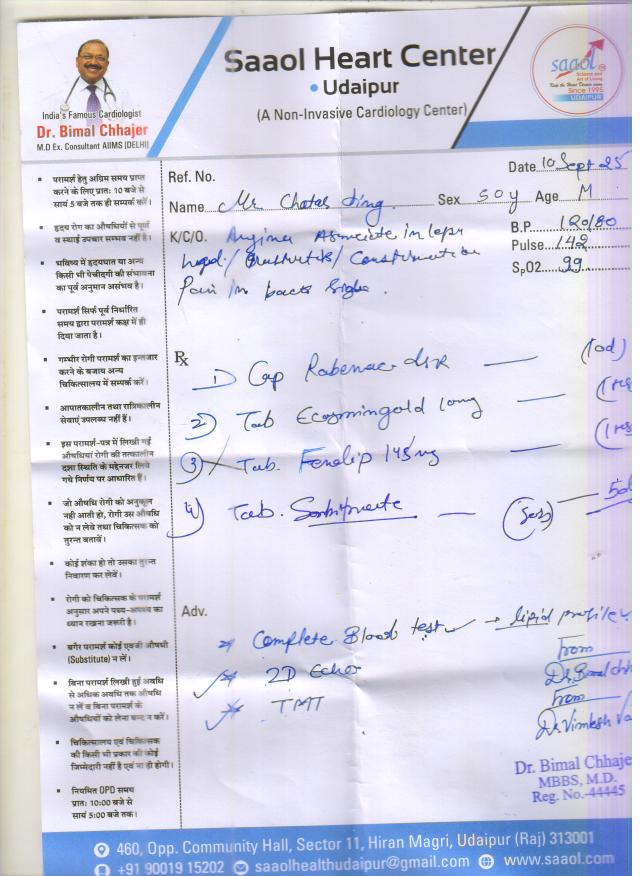 Saaol Heart Center
• Udaipur
(A Non-Invasive Cardiology Center)
saaol
Science and
Art of Living
Since 1995
UDAIPUR
India's Famous Cardiologist
Dr. Bimal Chhajer
M.D Ex. Consultant AIIMS (DELHI)
• परामर्श हेतु अग्रिम समय प्राप्त
करने के लिए प्रात: 10 बजे से
सायं 5 बजे तक ही सम्पर्क करें।
• हृदय रोग का औषधियों से पूर्ण
व स्थाई उपचार सम्भव नहीं है।
• भविष्य में हृदयघात या अन्य
किसी भी पेचीदगी की संभावना
का पूर्व अनुमान असंभव है।
• परामर्श सिर्फ पूर्व निर्धारित
समय द्वारा परामर्श कक्ष में ही
दिया जाता है।
• गम्भीर रोगी परामर्श का इन्तजार
करने के बजाय अन्य
चिकित्सालय में सम्पर्क करें।
• आपातकालीन तथा रात्रिकालीन
सेवाएं उपलब्ध नहीं हैं।
• इस परामर्श-पत्र में लिखी गई
औषधियाँ रोगी की तत्कालीन
दशा स्थिति के मद्देनजर लिये
गये निर्णय पर आधारित हैं।
• जो औषधि रोगी को अनुकूल
नही आती हो, रोगी उस औषधि
को न लेवे तथा चिकित्सक को
तुरन्त बतावें।
• कोई शंका हो तो उसका तुरन्त
निवारण कर लेवें।
• रोगी को चिकित्सक के परामर्श
अनुसार अपने पथ्य-अपथ्य का
ध्यान रखना जरूरी है।
• बगैर परामर्श कोई एवजी औषधी
(Substitute) न लें।
• बिना परामर्श लिखी हुई अवधि
से अधिक अवधि तक औषधि
न लें व बिना परामर्श के
औषधियों को लेना बन्द न करें।
• चिकित्सालय एवं चिकित्सक
की किसी भी प्रकार की कोई
जिम्मेदारी नहीं है एवं ना ही होगी।
• नियमित OPD समय
प्रात: 10:00 बजे से
सायं 5:00 बजे तक।
Ref. No.
Date 10 Sept 25
Name Mr. Sex 50y Age M
K/C/O. Angina
B.P. 120/80
Pulse 142
SpO2 99
Pain in back
Rx
1) Cap Rabenac dsr — (1od)
2) Tab Ecosmingold long —
3) Tab. Fenolip 145mg —
4) Tab. Sorbitrate —
Adv.
* Complete Blood test → lipid profile
* 2D Echo
* TMT
From
Dr. Bimal chh
From
Dr. Vimlesh
Dr. Bimal Chhaje
MBBS, M.D.
Reg. No.-44445
460, Opp. Community Hall, Sector 11, Hiran Magri, Udaipur (Raj) 313001
+91 90019 15202 saaolhealthudaipur@gmail.com www.saaol.com